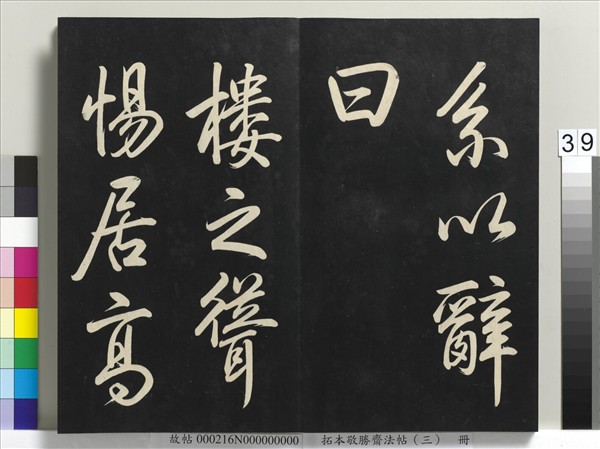 系以辭
曰
樓之聳
惕居高
39
故帖 000216N000000000 拓本敬勝齋法帖（三） 冊